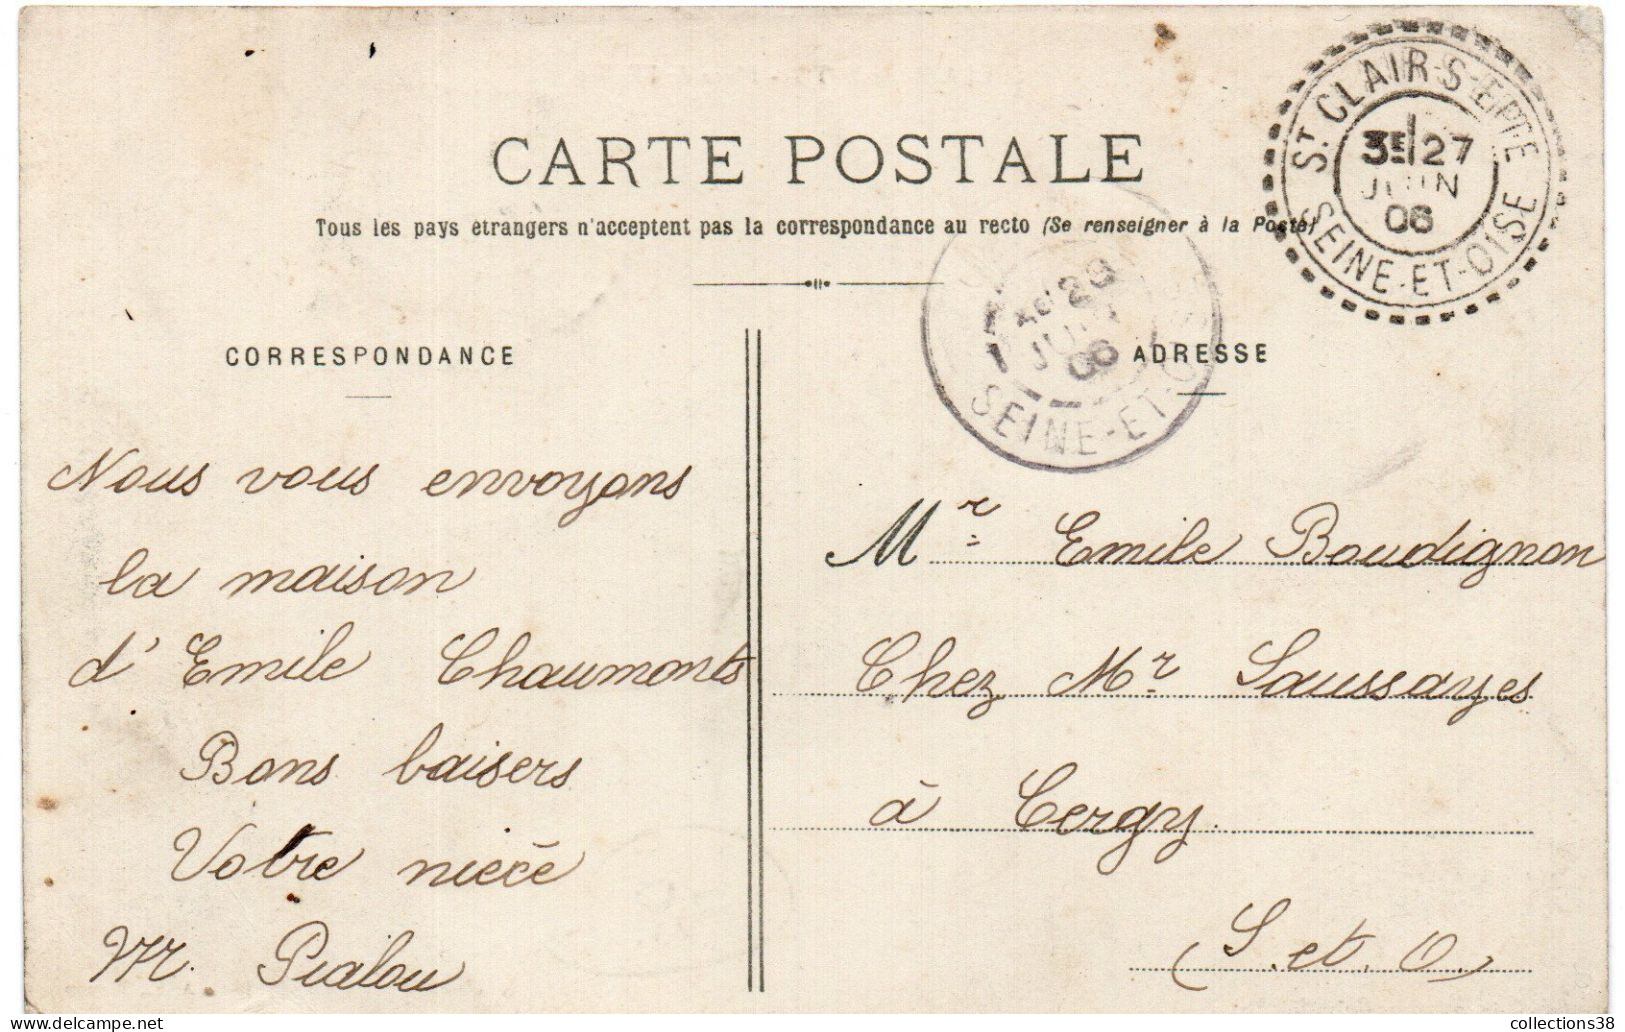 CARTE POSTALE
Tous les pays etrangers n'acceptent pas la correspondance au recto (Se renseigner à la Poste)
ST CLAIR-S-EPTE
3E 27
JUIN
06
SEINE-ET-OISE
29
06
SEINE-ET-O
CORRESPONDANCE
ADRESSE
Nous vous envoyons
la maison
d'Emile Chaumonts
Bons baisers
Votre niece
M. Pialou
Mr Emile Boudignon
Chez Mr Saussayes
à Cergy
(S. et. O.)
collections38